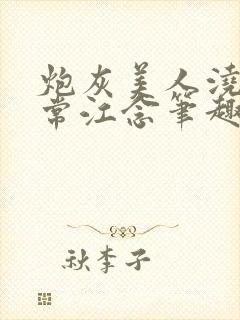 炮灰美人浇
常江念笔趣
秋李子